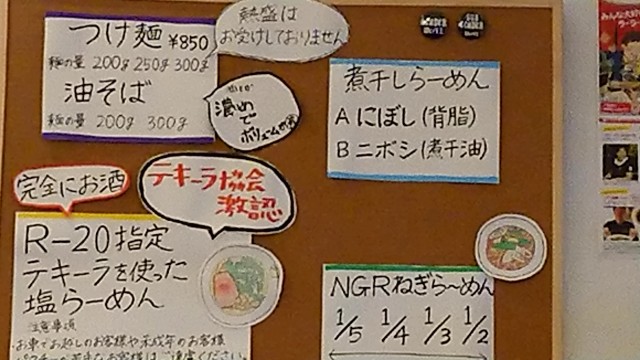 つけ麺 ¥850
麺の量 200g 250g 300g
油そば
麺の量 200g 300g
熱盛は
お受けしておりません
濃めで
煮干しらーめん
A にぼし (背脂)
B ニボシ (煮干油)
完全にお酒
テキーラ協会
激認
R-20指定
テキーラを使った
塩らーめん
注意事項
お車でお越しのお客様や未成年のお客様
NGRねぎら～めん
1/5 1/4 1/3 1/2